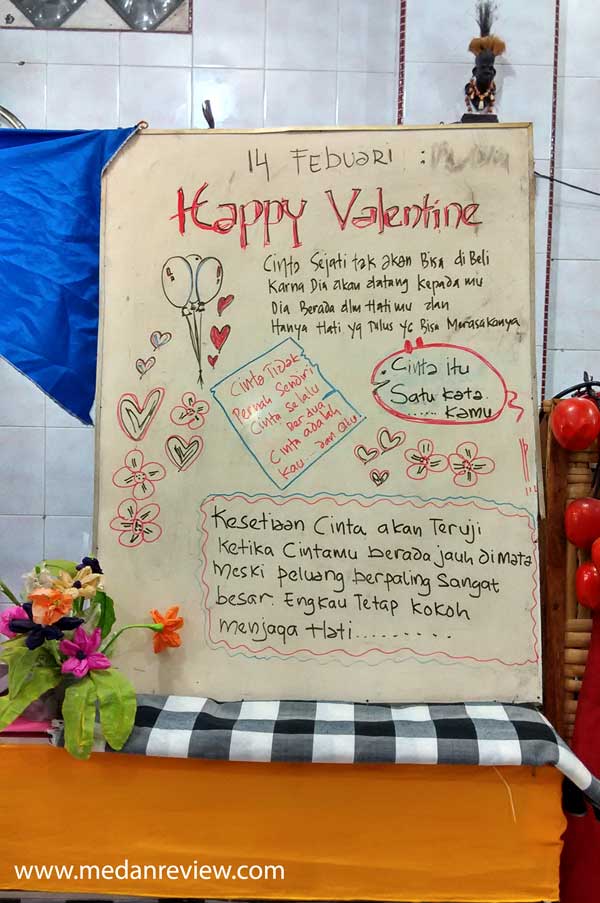 14 FEBUARI :
Happy Valentine
Cinta Sejati tak akan Bisa di Beli
Karna Dia akan datang kepada mu
Dia Berada dlm Hati mu dan
Hanya Hati yg Tulus yg Bisa Merasakanya
Cinta Tidak
Pernah Sendiri
Cinta selalu
Berdua
Cinta adalah
Kau... dan aku
Cinta itu
Satu kata.
...... kamu
Kesetiaan Cinta akan Teruji
ketika Cintamu berada jauh di mata
meski peluang berpaling sangat
besar. Engkau Tetap kokoh
menjaga Hati.........
www.medanreview.com